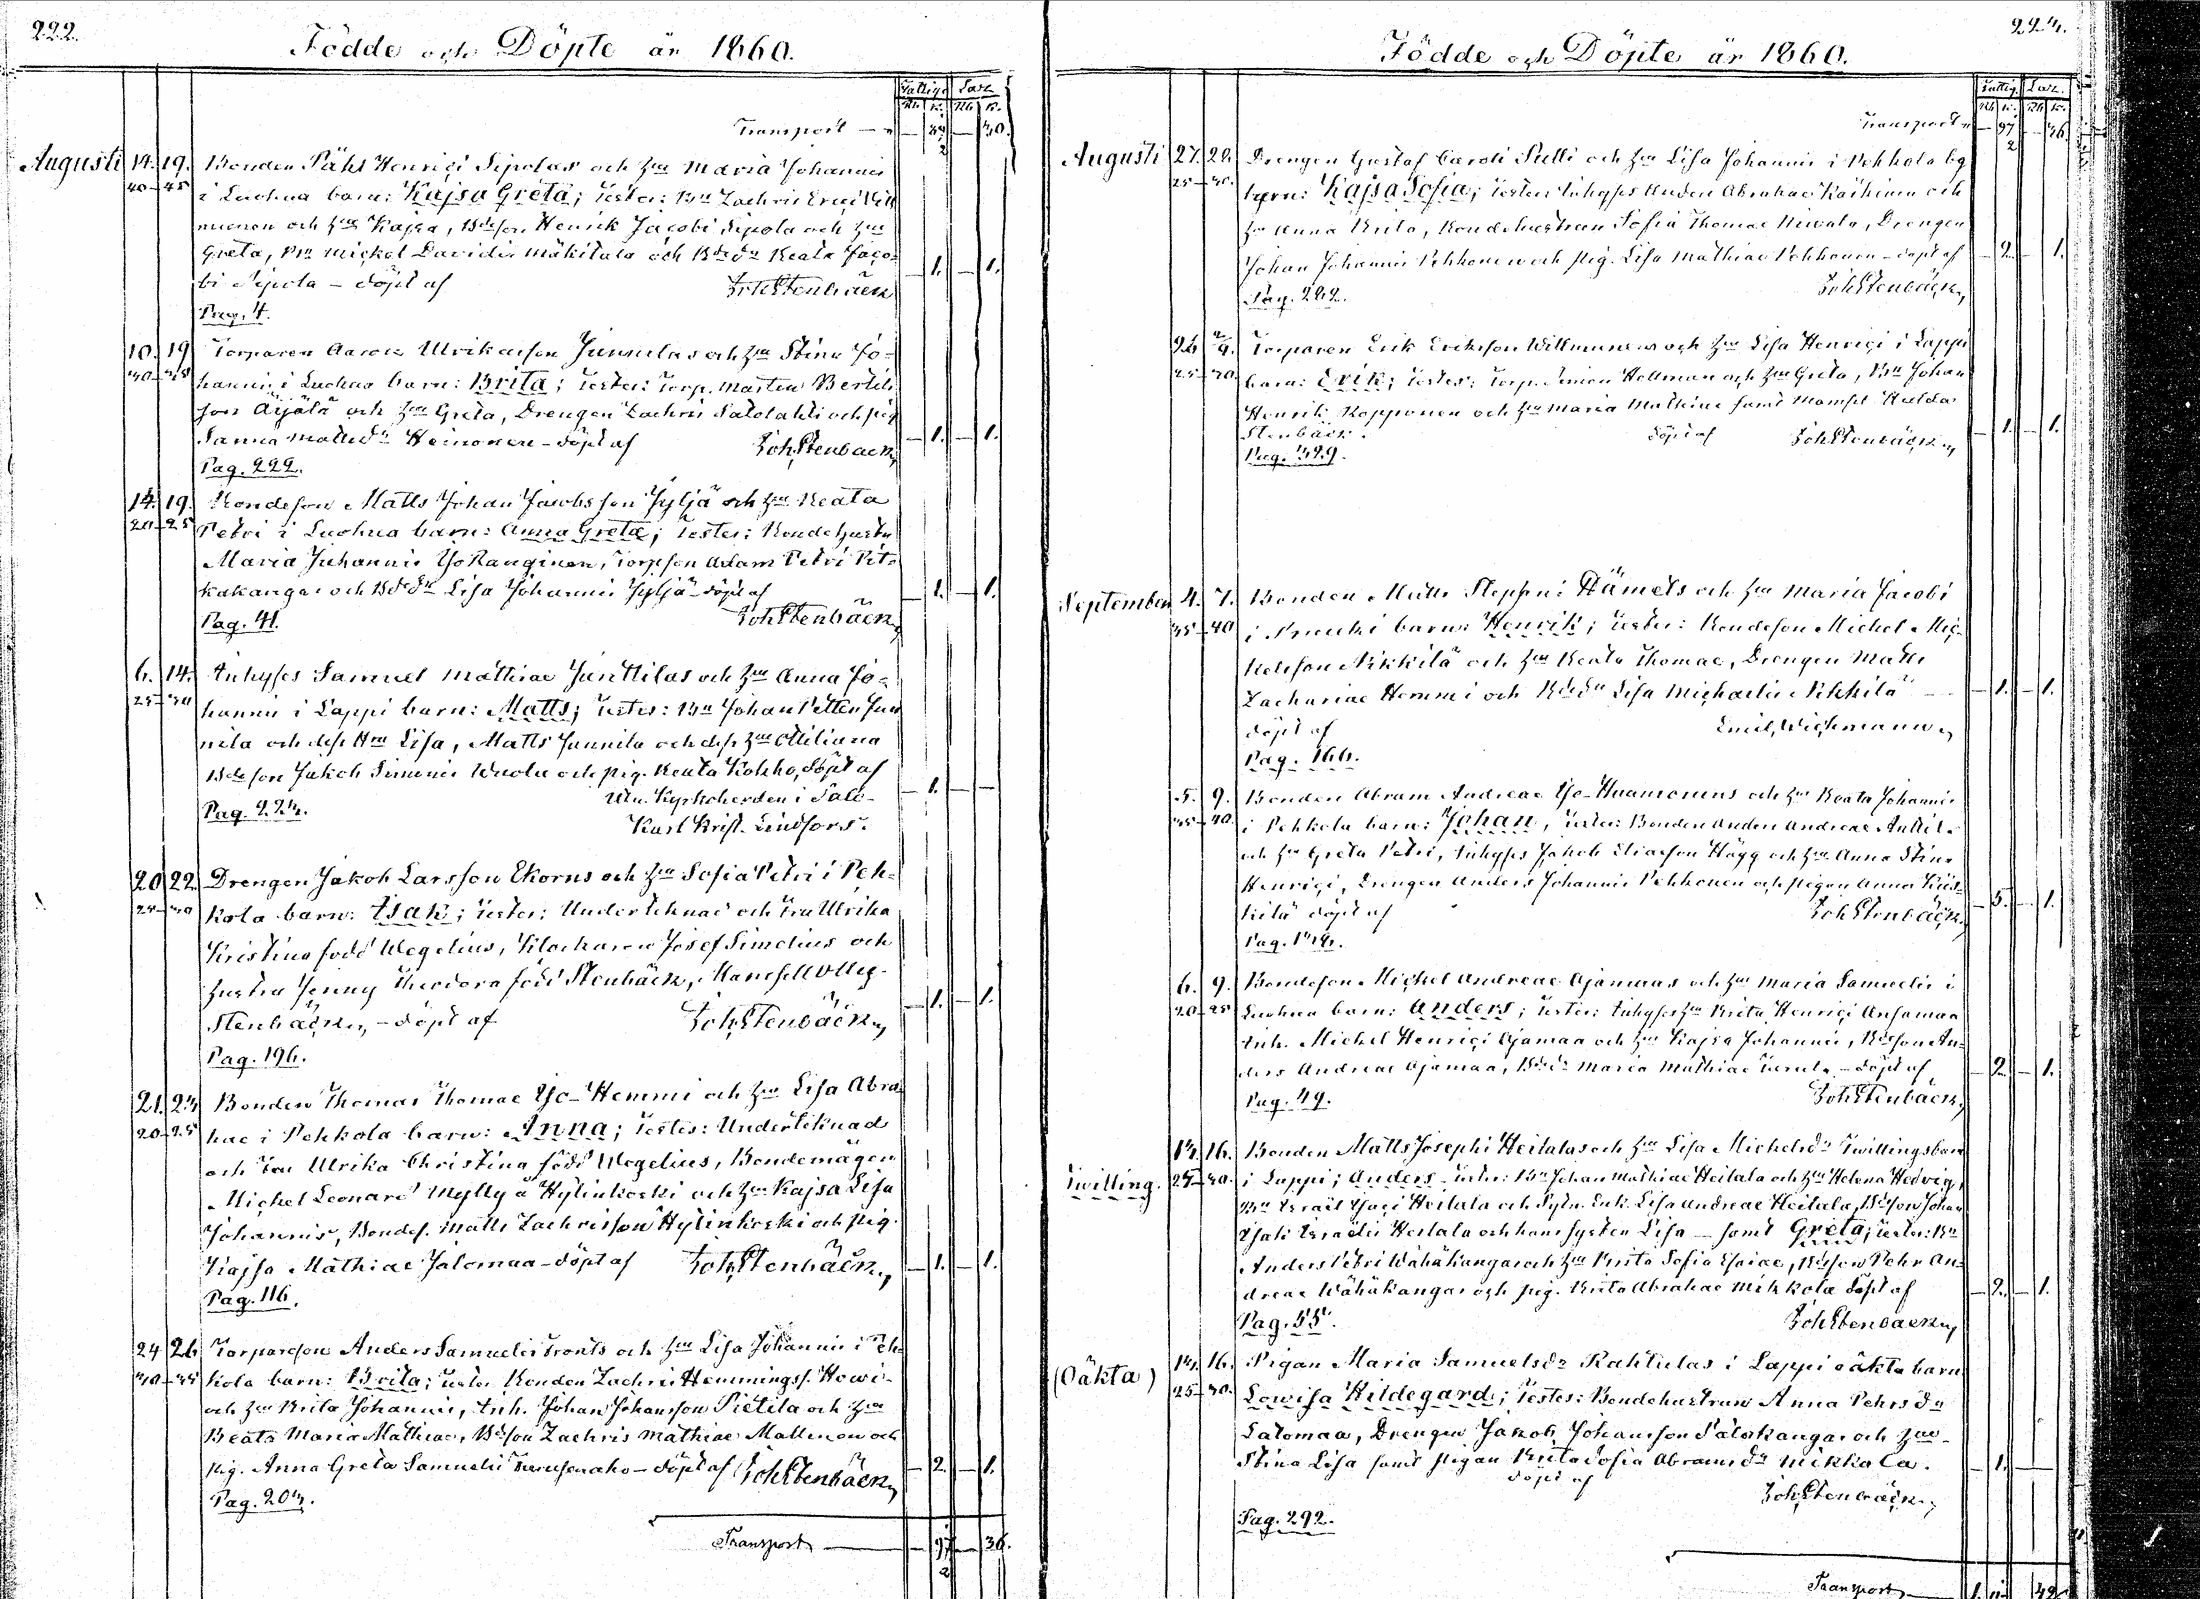 222.
Födde och Döpte år 1860.
Fattig. Sax.
Rb. k. Rb. k.
Transport — —
Augusti 14. 19. Bonden Pähr Henrici Sipolas och hu Maria Johannis
40-45 i Luohua barn: Kajsa Greta; Testes: Bn Zachris Erici Vill
munen och hu Kajsa, Bdeson Henrik Jacobi Sipola och hu
Greta, Bn Mickel Davidis Mäkitalo och Bdedr Beata Jaco-
bi Sipola - döpt af JohStenbäck — 1. — 1.
Pag. 4.
10. 19 Torparen Aaron Ulrikasson Junnilas och hu Stina Jo-
30-35 hannis i Luohua barn: Brita; Testes: Torp. Mårten Bertils
son Äijälä och hu Greta, Drengen Zachris Salolahti och pig
Sanna Mattsdr Heinonen - döpt af JohStenbäck — 1. — 1.
Pag. 222.
14. 19. Bondeson Matts Johan Jacobsson Jyljä och hu Beata
20-25 Petri i Luohua barn: Anna Greta; Testes: Bondehustru
Maria Johannis YoKanginen, Torpson Adam Petri Pit-
käkangas och Bdedr Lisa Johannis Jyljä - döpt af — 1. — 1.
Pag. 41. JohStenbäck
6. 14. Inhyses Samuel Mathiae Junttilas och hu Anna Jo-
25-30 hannis i Lappi barn: Matts; Testes: Bn Johan Petter Jun
nila och dess Hu Lisa, Matts Junnila och dess hu Miliana
Bdeson Jakob Simonis Wuolu och pig. Beata Kokko, döpt af — 1. — —
Pag. 224. Utn. Kyrkoherden i Salo-
Karl Krist. Lindfors.
20 22 Drengen Jakob Larsson Ekorns och hu Sofia Petri i Peh-
25-30 kola barn: Isak; Testes: Undertecknad och Fru Ulrika
Kristina född Wegelius, Klockaren Josef Simelius och
hustru Jenny Theodora född Stenbäck, Mamsell Olly
Stenbäck, - döpt af JohStenbäck — 1. — 1.
Pag. 196.
21. 23 Bonden Thomas Thomae Yo-Hemmi och hu Lisa Abra-
20-25 hae i Pehkola barn: Anna; Testes: Undertecknad
och Fru Ulrika Christina född Wegelius, Bondemågen
Michel Leonard Mylly å Hylinkoski och hu Kajsa Lisa
Johannis, Bondes. Matts Zachrisson Hylinkoski och pig.
Kajsa Mathiae Jalomaa - döpt af JohStenbäck — 1. — 1.
Pag. 116.
24 26 Torpareson Anders Samuelis Tronts och hu Lisa Johannis i Peh-
30-35 kola barn: Brita; Testes Bonden Zachris Hemmingss. Howi-
och hu Brita Johannis, Inh. Johan Johansson Pietila och hu
Beata Maria Mathiae, Bdson Zachris Mathiae Mallinen och
pig. Anna Greta Samuelis - döpt af JohStenbäck — 2. — 1.
Transport —
224.
Födde och Döpte år 1860.
Fattig. Sax.
Rb. k. Rb. k.
Transport
Augusti 27. 29. Drengen Gustaf Caroli Pulli och hu Lisa Johannis i Pehkola by
25-30. barn: Kajsa Sofia; Testes Inhyses Anders Abrahae Räihinen och
hu Anna Brita, Bondehustrun Sofia Thomae Niwala, Drengen
Johan Johannis Pehkonen och pig. Lisa Mathiae Pehkonen - döpt af — 2. — 1.
JohStenbäck
26. 2/9. Torparen Erik Eriksson Willmunens och hu Lisa Henrici i Lappi
25-30 barn: Erik; Testes: Torp. Simon Hollman och hu Greta, Bn Johan
Henrik Kopponen och hu Maria Mathiae samt Mamsel Hulda
Stenbäck. döpt af JohStenbäck — 1. — 1.
Pag. 329.
September 4. 7. Bonden Matts Steffani Hämets och hu Maria Jacobi
35-40 barn: Henrik; Testes: Bondeson Michel Mic-
kelsson Nikkilä och hu Beata Thomae, Drengen Matts
Zachariae Hemmi och Bdedr Lisa Michaelis Nikkilä — 1. — 1.
döpt af Emil Wichmann
Pag. 166.
5. 9. Bonden Abram Andreae Yo-Huamonens och hu Beata Johannis
35-40 i Pehkola barn: Johan, Testes: Bonden Anders Andreae Anttil-
och hu Greta Petri, Inhyses Jakob Eliaeson Hägg och hu Anna Stina
Henrici, Drengen Anders Johannis Pehkonen och pigan Anna
döpt af JohStenbäck — 5. — 1.
6. 9. Bondeson Michel Andreae Ojamaas och hu Maria Samuelis i
20-25 Luohua barn: Anders; Testes: Inhyses hu Brita Henrici Ansamaa
Inh. Michel Henrici Ojamaa och hu Kajsa Johannis, Bdeson An-
ders Andreae Ojamaa, Bdedr Maria Mathiae - döpt af — 2. — 1.
Pag. 49. JohStenbäck
13. 16. Bonden Matts Josephi Heitalas och hu Lisa Mickelsdr Twillingsbarn
Twilling. 25-30. i Lappi; Anders - Testes: Bn Johan Mathiae Heitala och hu Helena Hedvig,
Bn Israel Isaci Heitala och Enk. Lisa Andreae Heitala, Bdson Johan
Isak Israelis Heitala och hans syster Lisa - samt Greta; Testes: Bn
Anders Petri Wähäkangas och hu Brita Sofia Esaiae, Bdson Pehr An-
dreae Wähäkangas och pig. Brita Abrahae Mikkola döpt af — 2. — 1.
Pag. 55. JohStenbäck
(Oäkta) 14. 16. Pigan Maria Samuelsdr Rahtulas i Lappi oäkta barn
25-30. Lowisa Hildegard; Testes: Bondehustrun Anna Pehrsdr
Salomaa, Drengen Jakob Johansson Palokangas och hu
Stina Lisa samt pigan Brita Sofia Abramsdr Mikkola. — 1. —
döpt af JohStenbäck
Pag. 292.
Transport